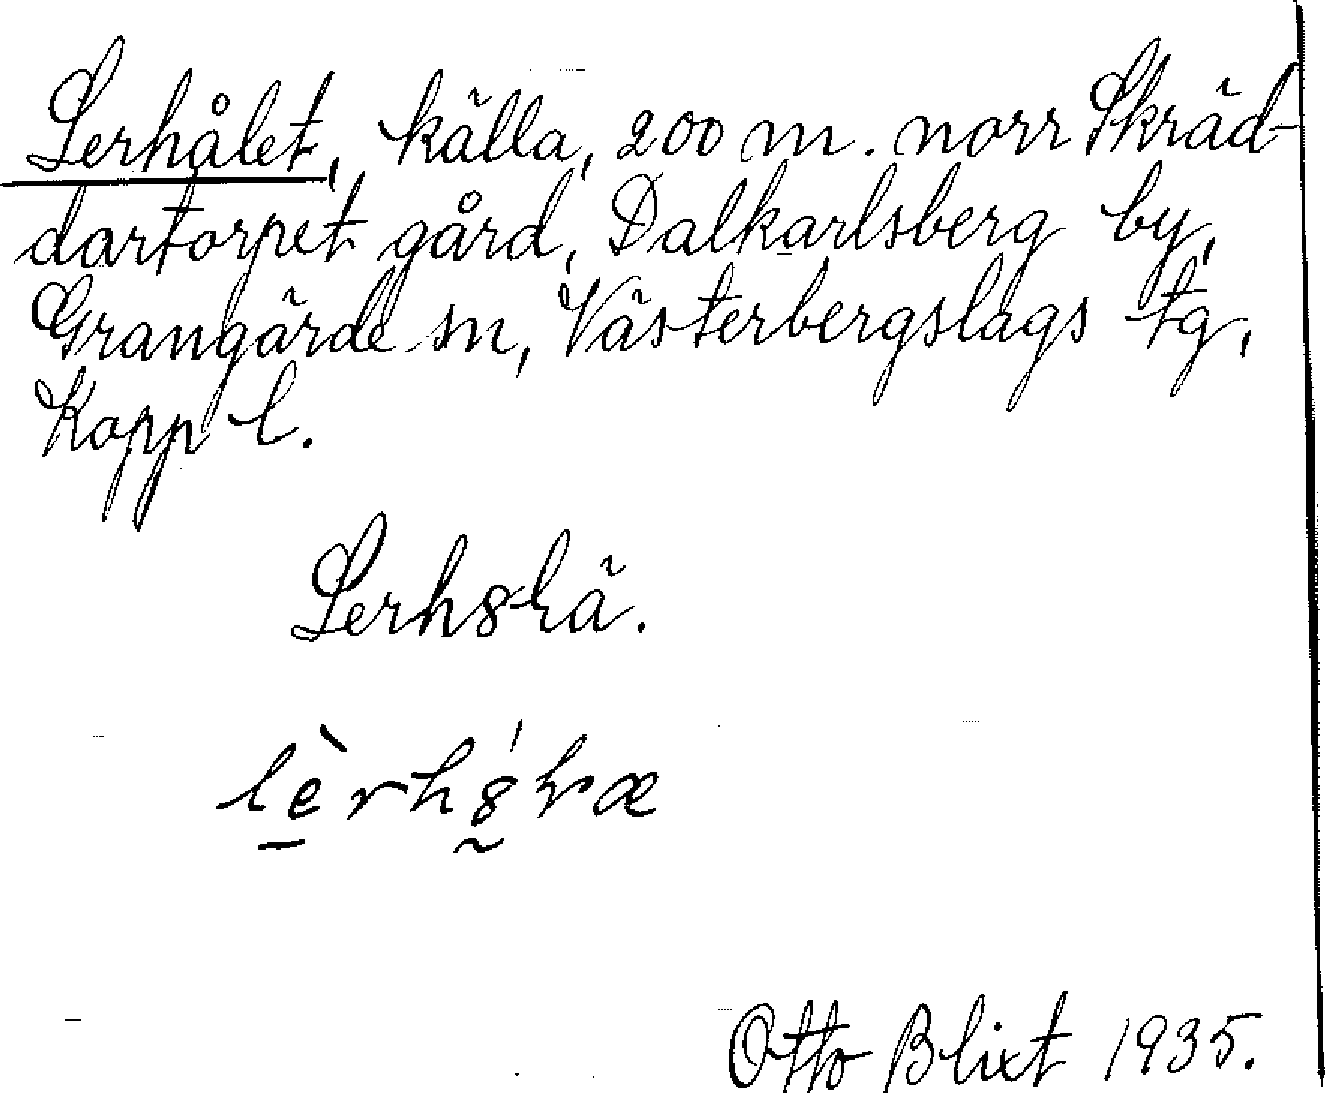 Lerhålet, källa, 200 m. norr Skräd-
dartorpet gård, Dalkarlsberg by,
Grangärde sn, Västerbergslags tg,
Kopp l.
Otto Blixt 1935.